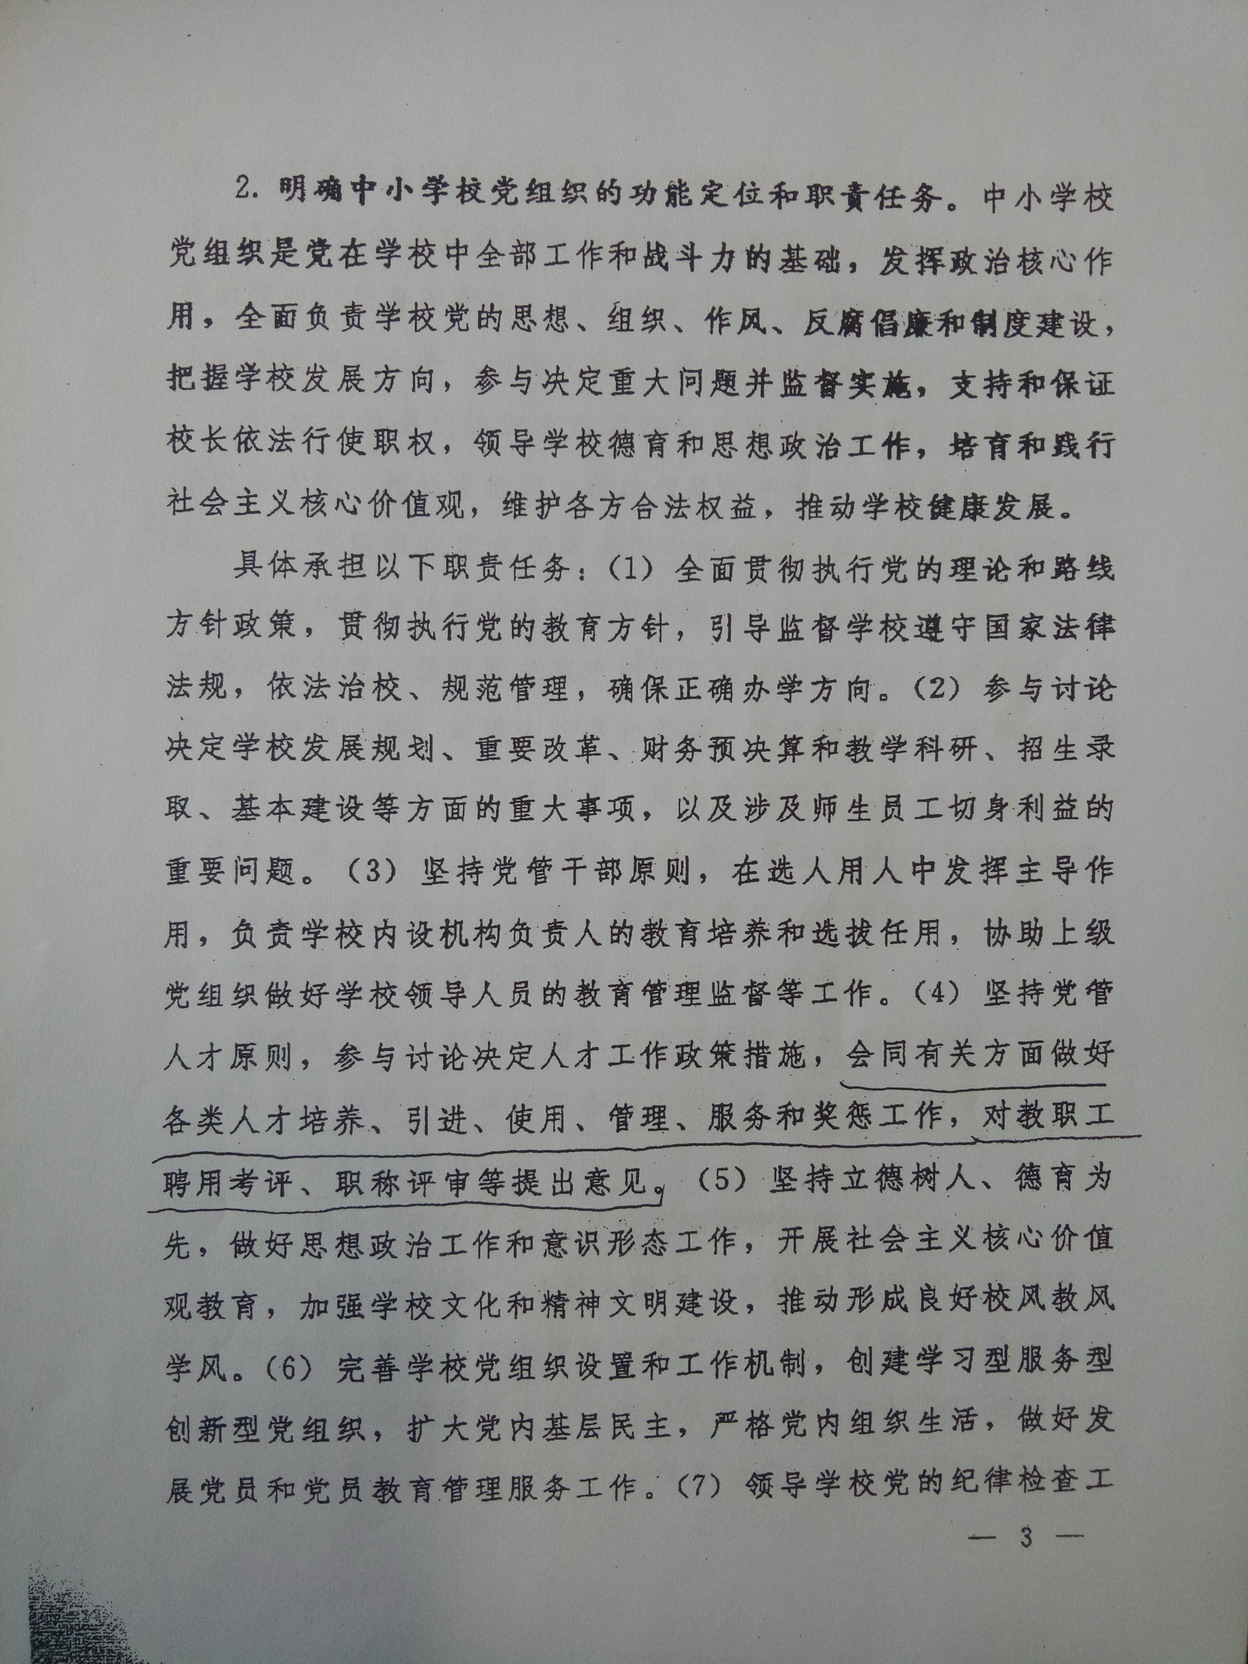 2. 明确中小学校党组织的功能定位和职责任务。中小学校
党组织是党在学校中全部工作和战斗力的基础，发挥政治核心作
用，全面负责学校党的思想、组织、作风、反腐倡廉和制度建设，
把握学校发展方向，参与决定重大问题并监督实施，支持和保证
校长依法行使职权，领导学校德育和思想政治工作，培育和践行
社会主义核心价值观，维护各方合法权益，推动学校健康发展。
具体承担以下职责任务：（1）全面贯彻执行党的理论和路线
方针政策，贯彻执行党的教育方针，引导监督学校遵守国家法律
法规，依法治校、规范管理，确保正确办学方向。（2）参与讨论
决定学校发展规划、重要改革、财务预决算和教学科研、招生录
取、基本建设等方面的重大事项，以及涉及师生员工切身利益的
重要问题。（3）坚持党管干部原则，在选人用人中发挥主导作
用，负责学校内设机构负责人的教育培养和选拔任用，协助上级
党组织做好学校领导人员的教育管理监督等工作。（4）坚持党管
人才原则，参与讨论决定人才工作政策措施，会同有关方面做好
各类人才培养、引进、使用、管理、服务和奖惩工作，对教职工
聘用考评、职称评审等提出意见。（5）坚持立德树人、德育为
先，做好思想政治工作和意识形态工作，开展社会主义核心价值
观教育，加强学校文化和精神文明建设，推动形成良好校风教风
学风。（6）完善学校党组织设置和工作机制，创建学习型服务型
创新型党组织，扩大党内基层民主，严格党内组织生活，做好发
展党员和党员教育管理服务工作。（7）领导学校党的纪律检查工
— 3 —